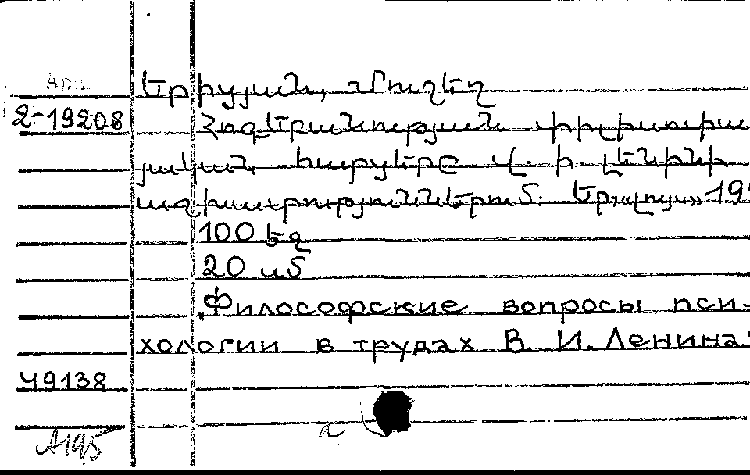 Երիցյան, Մուշեղ
2-19208 Հոգեբանության փիլիսոփա-
յական հարցերը Վ. Ի. Լենինի
աշխատություններում. Եր., «Լույս» 19
100 եզ
20 սմ
„Философские вопросы пси-
хологии в трудах В. И. Ленина"
49138
A195